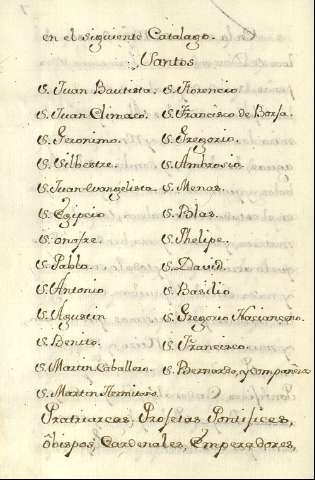 en el siguiente Catalago.
Santos
S. Juan Bautista. S. Florencio
S. Juan Climaco. S. Francisco de Borja.
S. Geronimo. S. Gregorio.
S. Silbestre. S. Ambrosio.
S. Juan evangelista. S. Menas.
S. Egipcio S. Blas.
S. onofre. S. Phelipe.
S. Pablo. S. David.
S. Antonio. S. Basilio
S. Agustin S. Gregorio Nacianceno.
S. Benito. S. Francisco.
S. Martin Caballero. S. Bernardo, y compañero
S. Martin Hermitaño.
Pratriarcas, Profetas Pontifices,
obispos, Cardenales, Emperadores,